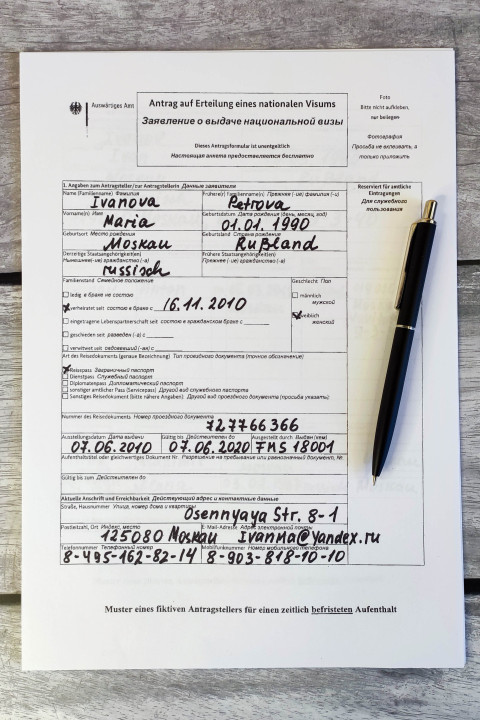 Auswärtiges Amt
Antrag auf Erteilung eines nationalen Visums
Заявление о выдаче национальной визы
Dieses Antragsformular ist unentgeltlich
Настоящая анкета предоставляется бесплатно
Foto
Bitte nicht aufkleben,
nur beilegen
Фотография
Просьба не вклеивать, а
только приложить
1. Angaben zum Antragsteller/zur Antragstellerin Данные заявителя
Reserviert für amtliche
Eintragungen
Для служебного
пользования
Name (Familienname) Фамилия
Ivanova
Frühere(r) Familienname(n) Прежние (-ие) фамилия (-и)
Petrova
Vorname(n) Имя
Maria
Geburtsdatum Дата рождения (день, месяц, год)
01.01.1990
Geburtsort Место рождения
Moskau
Geburtsland Страна рождения
Rußland
Derzeitige Staatsangehörigkeit(en)
Нынешнее(-ие) гражданство (-а)
russisch
Frühere Staatsangehörigkeit(en)
Прежнее (-ие) гражданство (-а)
Familienstand Семейное положение
ledig в браке не состою
verheiratet seit состою в браке с 16.11.2010
eingetragene Lebenspartnerschaft seit состою в гражданском браке с
geschieden seit разведен (-а) с
verwitwet seit овдовевший (-ая) с
Geschlecht Пол
männlich
мужской
weiblich
женский
Art des Reisedokuments (genaue Bezeichnung) Тип проездного документа (точное обозначение)
Reisepass Заграничный паспорт
Dienstpass Служебный паспорт
Diplomatenpass Дипломатический паспорт
sonstiger amtlicher Pass (Servicepass) Другой вид служебного паспорта
Sonstiges Reisedokument (bitte nähere Angaben) Другой вид проездного документа (просьба указать)
Nummer des Reisedokuments Номер проездного документа
727766366
Ausstellungsdatum Дата выдачи
07.06.2010
Gültig bis Действителен до
07.06.2020
Ausgestellt durch Выдан (кем)
FMS 18001
Aufenthaltstitel oder gleichwertiges Dokument Nr. Разрешение на пребывание или равнозначный документ, №.
Gültig bis zum Действителен до
Aktuelle Anschrift und Erreichbarkeit Действующий адрес и контактные данные
Straße, Hausnummer Улица, номер дома и квартиры
Osennyaya Str. 8-1
Postleitzahl, Ort Индекс, место
125080 Moskau
E-Mail-Adresse Адрес электронной почты
Ivanna@yandex.ru
Telefonnummer Телефонный номер
8-495-162-82-14
Mobilfunknummer Номер мобильного телефона
8-903-818-10-10
Muster eines fiktiven Antragstellers für einen zeitlich befristeten Aufenthalt